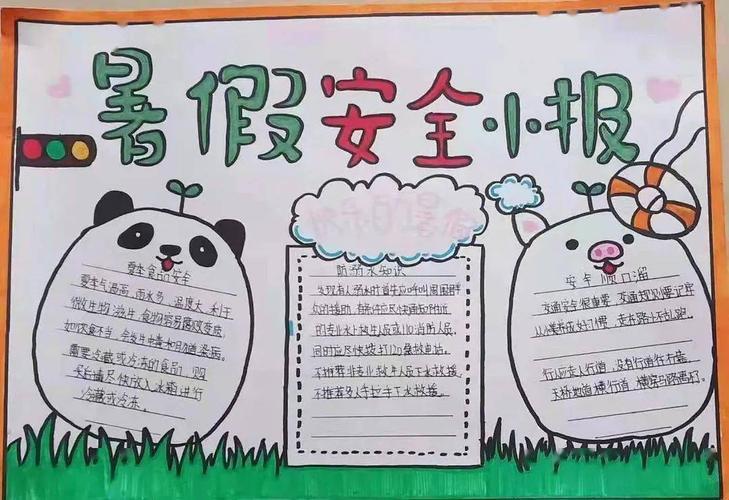 暑假安全小报
快乐的暑假
夏季食品安全
夏季气温高,雨水多,温度大,利于
微生物滋生,食物容易腐败变质,
如饮食不当,会发生中毒和肠道染病。
需要冷藏或冷冻的食品,购
买后请尽快放入冰箱进行
冷藏或冷冻。
防溺水知识
发现有人溺水时首先应呼叫周围群
众的援助,有条件应尽快通知附近
的专业水上救生人员或110消防人员。
同时应尽快拨打120急救电话。
不推荐非专业救生人员下水救援,
不推荐多人手拉手下水救援。
安全顺口溜
交通安全很重要,交通规则要记牢
从小养成好习惯,走在路上不乱跑。
行人应走人行道,没有行道往右靠
天桥地道横行道,横穿马路离不了。